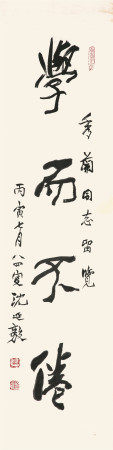 學而不倦
秀蘭同志留覽
丙寅七月八四叟沈延毅